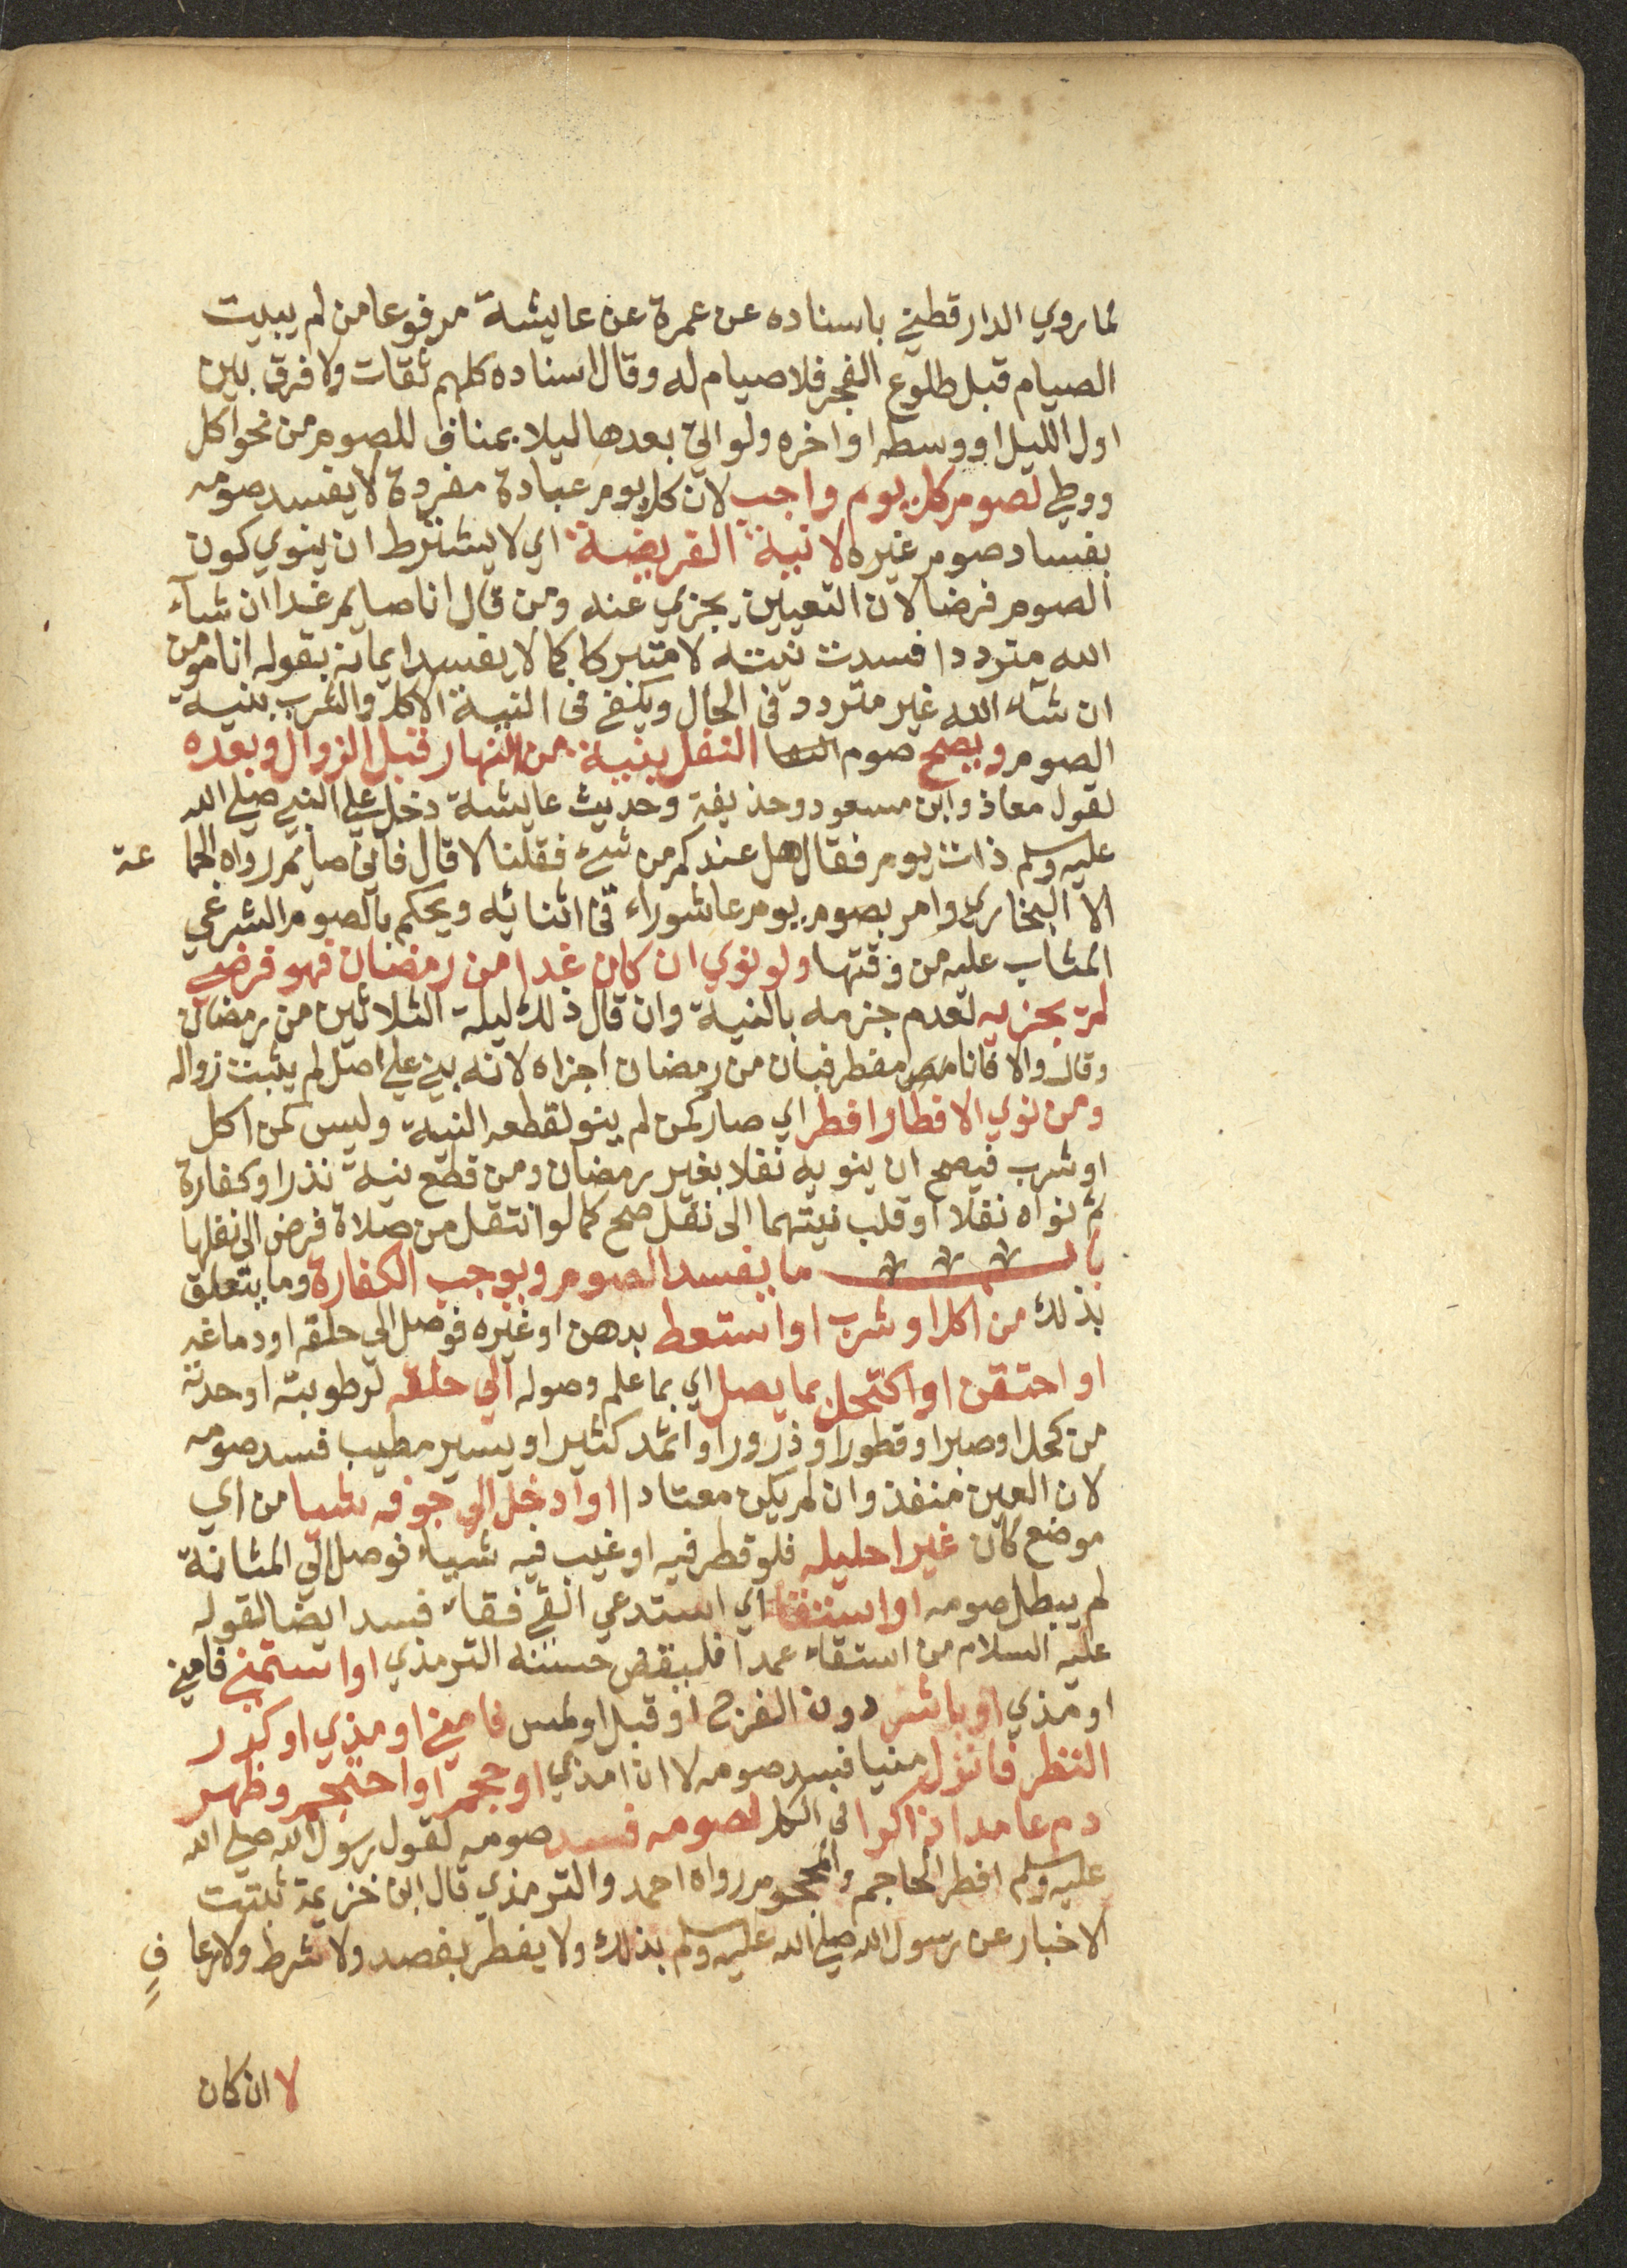 لما روي الدارقطني باسناده عن عمرة عن عايشة مرفوعا من لم يبيت
الصيام قبل طلوع الفجر فلا صيام له وقال اسناده كلهم ثقات ولا فرق بين
اول الليل او وسطه او اخره ولو اتى بعدها ليلا بمناف للصوم من نحو اكل
ووطي لصوم كل يوم واجب لان كل يوم عبادة مفردة لا يفسد صومه
بفساد صوم غيره لا نية الفريضة اي لا يشترط ان ينوي كون
الصوم فرضا لان التعيين يجزي عنه ومن قال انا صايم غدا ان شآء
الله مترددا فسدت نيته لا متبركا كما لا يفسد ايمانه بقوله انا مومن
ان شآء الله غير متردد في الحال ويكفي في النية الاكل والشرب بنية
الصوم ويصح صوم النفل بنية من النهار قبل الزوال وبعده
لقول معاذ وابن مسعود وحذيفة وحديث عايشة دخل علي النبي صلي الله
عليه وسلم ذات يوم فقال هل عندكم من شيء فقلنا لا قال فاني صايم رواه الجما عة
الا البخاري وامر بصوم يوم عاشوراء في اثنائه ويحكم بالصوم الشرعي
المثاب عليه من وقتها ولو نوي ان كان غدا من رمضان فهو فرضي
لم يجزيه لعدم جزمه بالنية وان قال ذلك ليلة الثلاثين من رمضان
وقال والا فانا مفطر فبان من رمضان اجزاه لانه بني علي اصل لم يثبت زواله
ومن نوي الافطار افطر اي صار كمن لم ينو لقطعه النية وليس كمن اكل
او شرب فيصح ان ينويه نفلا بغير رمضان ومن قطع نية نذر او كفارة
ثم نواه نفلا او قلب نيتهما الى نفل صح كما لو انتقل من صلاة فرض الي نفلها
باب ما يفسد الصوم ويوجب الكفارة وما يتعلق
بذلك من اكل او شرب او استعط بدهن او غيره فوصل الي حلقه او دماغه
او احتقن او اكتحل بما يصل اي بما علم وصوله الي حلقه لرطوبته او حدته
من كحل او صبر او قطور او ذرور او اثمد كثير او يسير مطيب فسد صومه
لان العين منفذ وان لم يكن معتادا او ادخل الي جوفه شيا من اي
موضع كان غير احليله فلو قطر فيه او غيب فيه شيياء فوصل الي المثانة
لم يبطل صومه او استقاء اي استدعي القي فقاء فسد ايضا لقوله
عليه السلام من استقاء عمدا فليقض حسنه الترمذي او استمني فامني
او مذي او باشر دون الفرج او قبل او لمس فامني او مذي او كرر
النظر فانزل منيا فسد صومه لا ان امذي او حجم او احتجم وظهر
دم عامدا ذاكرا في الكل لصومه فسد صومه لقول رسول الله صلي الله
عليه وسلم افطر الحاجم والمحجوم رواه احمد والترمذي قال ابن خزيمة ثبتت
الاخبار عن رسول الله صلي الله عليه وسلم بذلك ولا يفطر بفصد ولا شرط ولا رعا ف
لا ان كان